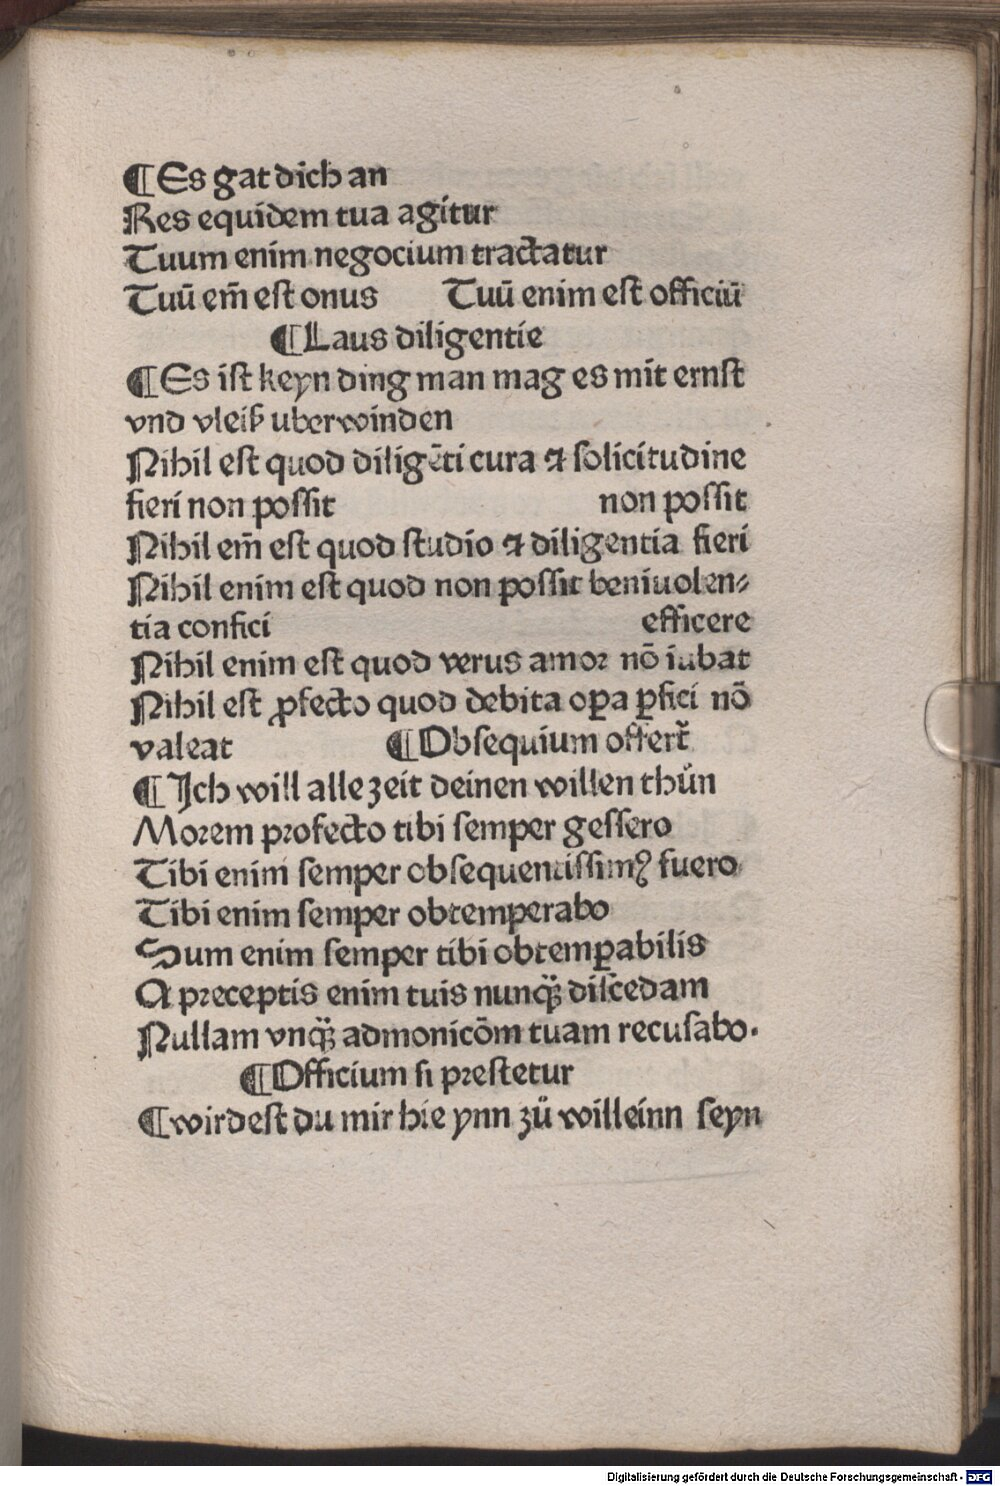 ¶Es gat dich an
Res equidem tua agitur
Tuum enim negocium tractatur
Tuū em̄ est onus Tuū enim est officiū
¶Laus diligentie
¶Es ist keyn ding man mag es mit ernst
vnd vleiß uberwinden
Nihil est quod diligēti cura ⁊ solicitudine
fieri non possit non possit
Nihil em̄ est quod studio ⁊ diligentia fieri
Nihil enim est quod non possit beniuolen⸗
tia confici efficere
Nihil enim est quod verus amor nō iubat
Nihil est ꝓfecto quod debita oꝑa ꝑfici nō
valeat ¶Obsequium offert̄
¶Ich will alle zeit deinen willen thůn
Morem profecto tibi semper gessero
Tibi enim semper obsequentissimꝰ fuero
Tibi enim semper obtemperabo
Sum enim semper tibi obtemꝑabilis
A preceptis enim tuis nunq̈ꝫ discedam
Nullam vnq̈ꝫ admonicōm tuam recusabo.
¶Officium si prestetur
¶wirdest du mir hie ynn zů willeinn seyn
Digitalisierung gefördert durch die Deutsche Forschungsgemeinschaft - DFG